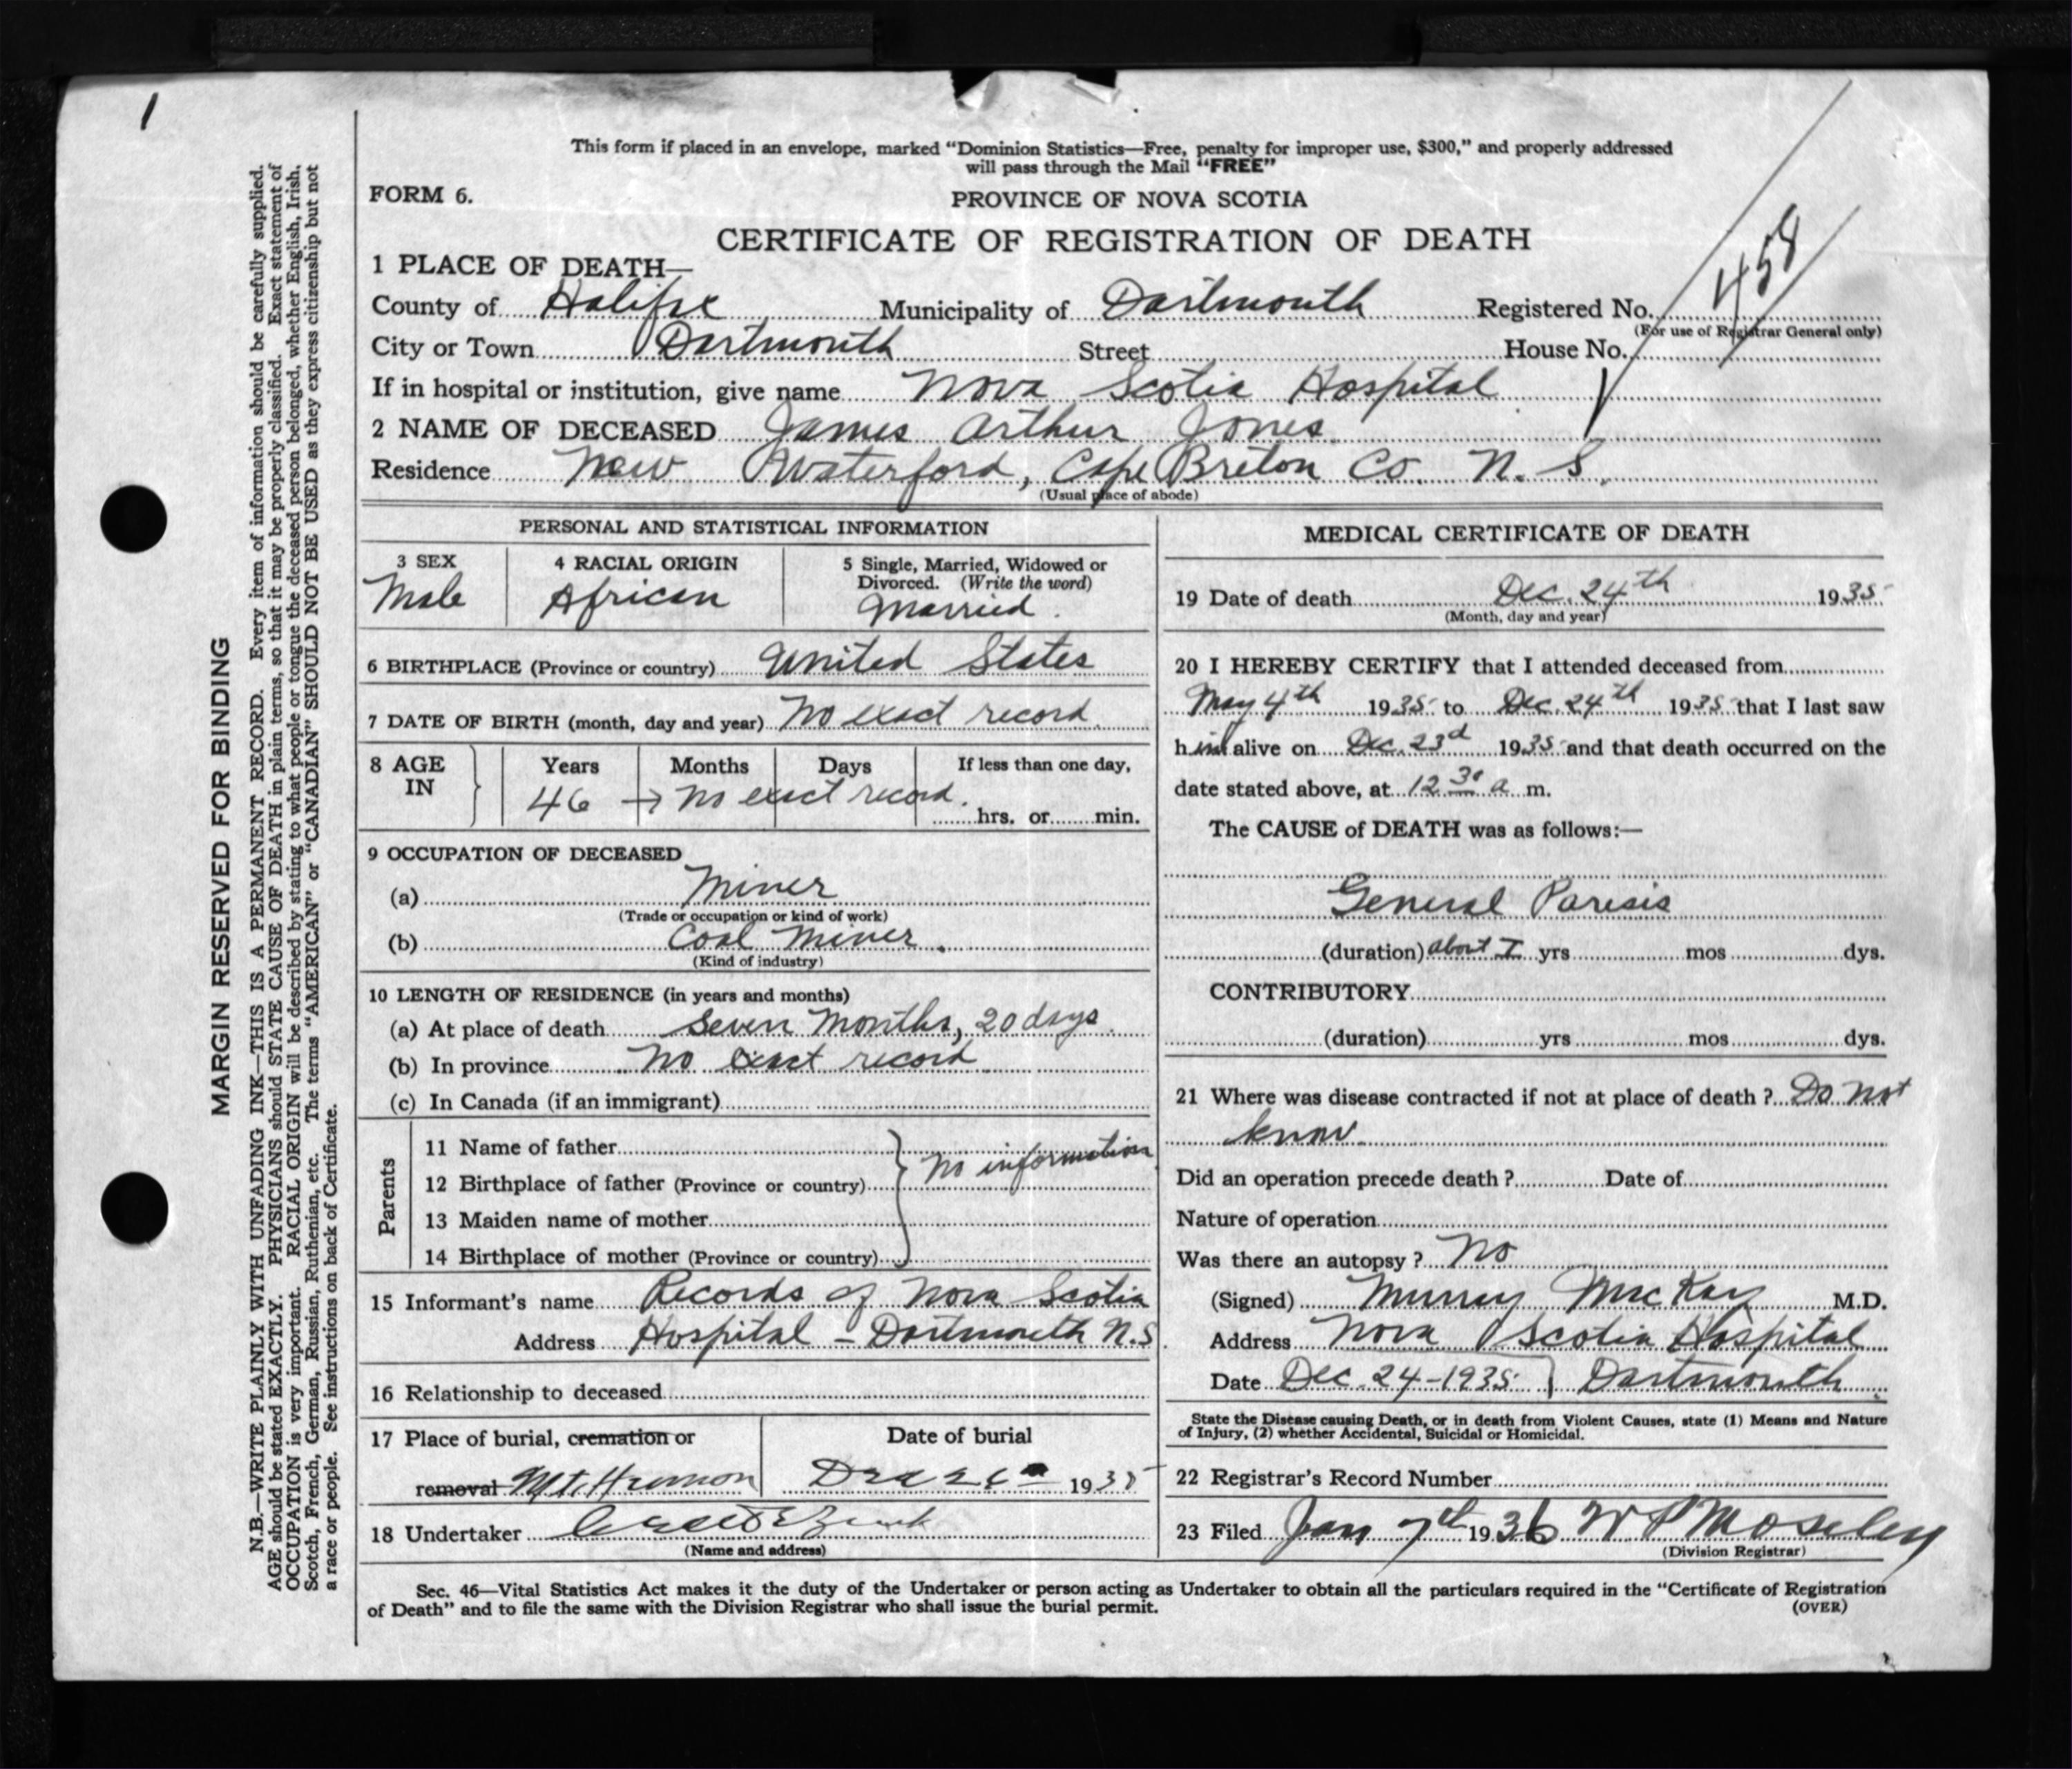 This form if placed in an envelope, marked "Dominion Statistics—Free, penalty for improper use, $300," and properly addressed
will pass through the Mail "FREE"
FORM 6.
PROVINCE OF NOVA SCOTIA
CERTIFICATE OF REGISTRATION OF DEATH
1 PLACE OF DEATH—
County of Halifx Municipality of Dartmouth Registered No. 458
(For use of Registrar General only)
City or Town Dartmouth Street House No.
If in hospital or institution, give name Nova Scotia Hospital
2 NAME OF DECEASED James Arthur Jones
Residence New Waterford, Cape Breton Co. N. S.
(Usual place of abode)
PERSONAL AND STATISTICAL INFORMATION
3 SEX 4 RACIAL ORIGIN 5 Single, Married, Widowed or
Divorced. (Write the word)
Male African Married.
6 BIRTHPLACE (Province or country) United States
7 DATE OF BIRTH (month, day and year) No exact record.
8 AGE IN Years Months Days If less than one day,
46 → No exact record. hrs. or min.
9 OCCUPATION OF DECEASED
(a) Miner
(Trade or occupation or kind of work)
(b) Coal Miner.
(Kind of industry)
10 LENGTH OF RESIDENCE (in years and months)
(a) At place of death Seven Months, 20 days.
(b) In province No exact record
(c) In Canada (if an immigrant)
Parents
11 Name of father
12 Birthplace of father (Province or country) No information
13 Maiden name of mother
14 Birthplace of mother (Province or country)
15 Informant's name Records of Nova Scotia
Address Hospital - Dartmouth N.S.
16 Relationship to deceased
17 Place of burial, cremation or Date of burial
removal Mt. Hermon 1935
18 Undertaker
(Name and address)
MEDICAL CERTIFICATE OF DEATH
19 Date of death Dec. 24th 1935
(Month, day and year)
20 I HEREBY CERTIFY that I attended deceased from
May 4th 1935 to Dec. 24th 1935 that I last saw
him alive on Dec. 23d 1935 and that death occurred on the
date stated above, at 12 30 a m.
The CAUSE of DEATH was as follows:—
General Paresis
(duration) about I yrs mos dys.
CONTRIBUTORY
(duration) yrs mos dys.
21 Where was disease contracted if not at place of death? Do not
know.
Did an operation precede death? Date of
Nature of operation
Was there an autopsy? No
(Signed) Murray MacKay M.D.
Address Nova Scotia Hospital
Date Dec. 24-1935 Dartmouth
State the Disease causing Death, or in death from Violent Causes, state (1) Means and Nature
of Injury, (2) whether Accidental, Suicidal or Homicidal.
22 Registrar's Record Number
23 Filed Jan 7th 1936 W P Moseley
(Division Registrar)
Sec. 46—Vital Statistics Act makes it the duty of the Undertaker or person acting as Undertaker to obtain all the particulars required in the "Certificate of Registration
of Death" and to file the same with the Division Registrar who shall issue the burial permit.
(OVER)
MARGIN RESERVED FOR BINDING
N.B.—WRITE PLAINLY WITH UNFADING INK—THIS IS A PERMANENT RECORD. Every item of information should be carefully supplied.
AGE should be stated EXACTLY. PHYSICIANS should STATE CAUSE OF DEATH in plain terms, so that it may be properly classified. Exact statement of
OCCUPATION is very important. RACIAL ORIGIN will be described by stating to what people or tongue the deceased person belonged, whether English, Irish,
Scotch, French, German, Russian, Ruthenian, etc. The terms "AMERICAN" or "CANADIAN" SHOULD NOT BE USED as they express citizenship but not
a race or people. See instructions on back of Certificate.